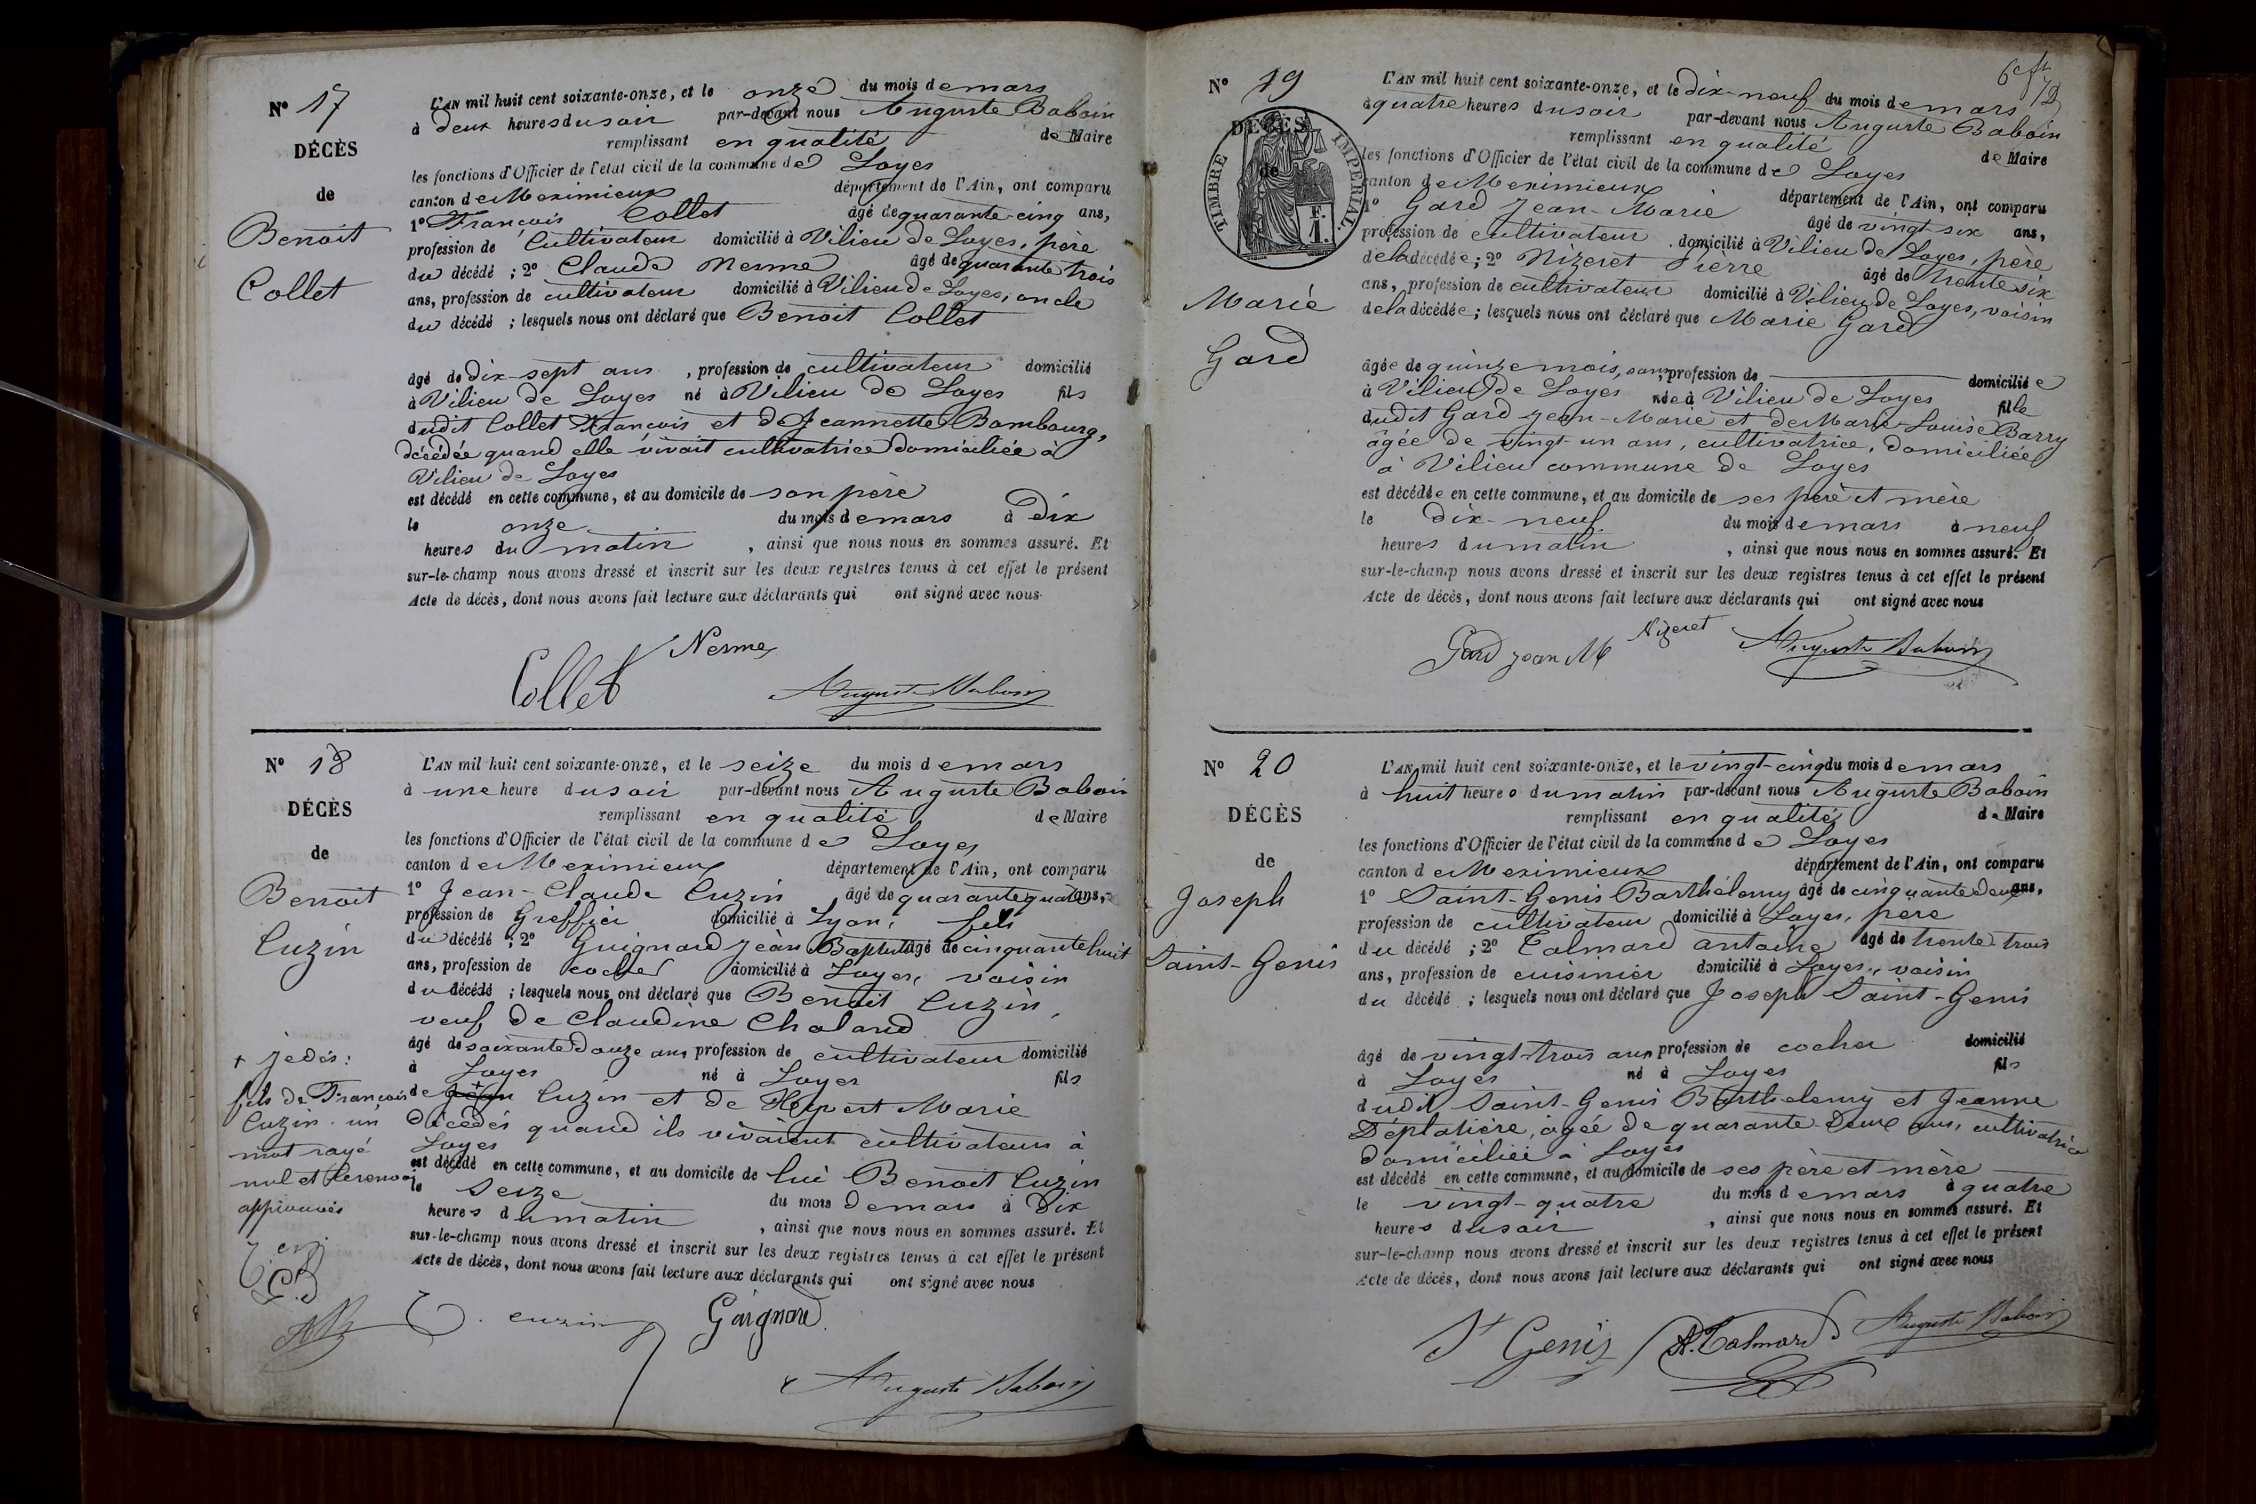 N° 17
DÉCÈS
de
Benoit
Collet
L'AN mil huit cent soixante-onze, et le onze du mois de mars
à deux heures du soir par-devant nous Auguste Baboin
remplissant en qualité de Maire
les fonctions d'Officier de l'état civil de la commune de Loyes
canton de Meximieux département de l'Ain, ont comparu
1° François Collet âgé de quarante-cinq ans,
profession de Cultivateur domicilié à Vilieu de Loyes, père
du décédé ; 2° Claude Nesme âgé de quarante trois
ans, profession de cultivateur domicilié à Vilieu de Loyes, oncle
du décédé ; lesquels nous ont déclaré que Benoit Collet
âgé de dix-sept ans, profession de cultivateur domicilié
à Vilieu de Loyes né à Vilieu de Loyes fils
dudit Collet François et de Jeannette Bombourg,
décédée quand elle vivait cultivatrice domiciliée à
Vilieu de Loyes
est décédé en cette commune, et au domicile de son père
le onze du mois de mars à dix
heures du matin, ainsi que nous nous en sommes assuré. Et
sur-le-champ nous avons dressé et inscrit sur les deux registres tenus à cet effet le présent
Acte de décès, dont nous avons fait lecture aux déclarants qui ont signé avec nous
Nesme
Collet
Auguste Baboin
N° 18
DÉCÈS
de
Benoit
Cuzin
L'AN mil huit cent soixante-onze, et le seize du mois de mars
à une heure du soir par-devant nous Auguste Baboin
remplissant en qualité de Maire
les fonctions d'Officier de l'état civil de la commune de Loyes
canton de Meximieux département de l'Ain, ont comparu
1° Jean-Claude Cuzin âgé de quarante quatre ans,
profession de Greffier domicilié à Lyon, fils
du décédé ; 2° Guignard Jean Baptiste âgé de cinquante huit
ans, profession de cocher domicilié à Loyes, voisin
du décédé ; lesquels nous ont déclaré que Benoit Cuzin,
veuf de Claudine Chaland
âgé de soixante douze ans profession de cultivateur domicilié
à Loyes né à Loyes fils
de Jean Cuzin et de Hyvert Marie
décédés quand ils vivaient cultivateurs à
Loyes
est décédé en cette commune, et au domicile de lui Benoit Cuzin
le seize du mois de mars à dix
heures du matin, ainsi que nous nous en sommes assuré. Et
sur-le-champ nous avons dressé et inscrit sur les deux registres tenus à cet effet le présent
Acte de décès, dont nous avons fait lecture aux déclarants qui ont signé avec nous
+ je dis :
fils de François
Cuzin. un
mot rayé
nul et le renvoi
approuvés
cuzin
Guignard
Auguste Baboin
N° 19
TIMBRE IMPERIAL
F.
1.
DÉCÈS
de
Marie
Gard
L'AN mil huit cent soixante-onze, et le dix-neuf du mois de mars
à quatre heures du soir par-devant nous Auguste Baboin
remplissant en qualité de Maire
les fonctions d'Officier de l'état civil de la commune de Loyes
canton de Meximieux département de l'Ain, ont comparu
1° Gard Jean-Marie âgé de vingt six ans,
profession de cultivateur domicilié à Vilieu de Loyes, père
de la décédée ; 2° Nizeret Pierre âgé de trente six
ans, profession de cultivateur domicilié à Vilieu de Loyes, voisin
de la décédée ; lesquels nous ont déclaré que Marie Gard
âgée de quinze mois, sans profession de domiciliée
à Vilieu de Loyes née à Vilieu de Loyes fille
dudit Gard Jean-Marie et de Marie-Louise Barry
âgée de vingt un ans, cultivatrice, domiciliée
à Vilieu commune de Loyes
est décédée en cette commune, et au domicile de ses père et mère
le dix-neuf du mois de mars à neuf
heures du matin, ainsi que nous nous en sommes assuré. Et
sur-le-champ nous avons dressé et inscrit sur les deux registres tenus à cet effet le présent
Acte de décès, dont nous avons fait lecture aux déclarants qui ont signé avec nous
Gard jean M Nizeret Auguste Baboin
N° 20
DÉCÈS
de
Joseph
Saint-Genis
L'AN mil huit cent soixante-onze, et le vingt-cinq du mois de mars
à huit heures du matin par-devant nous Auguste Baboin
remplissant en qualité de Maire
les fonctions d'Officier de l'état civil de la commune de Loyes
canton de Meximieux département de l'Ain, ont comparu
1° Saint-Genis Barthélemy âgé de cinquante deux ans,
profession de cultivateur domicilié à Loyes, père
du décédé ; 2° Talmard antoine âgé de trente-trois
ans, profession de cuisinier domicilié à Loyes, voisin
du décédé ; lesquels nous ont déclaré que Joseph Saint-Genis
âgé de vingt-trois ans profession de cocher domicilié
à Loyes né à Loyes fils
dudit Saint-Genis Barthélemy et Jeanne
Déplatière, âgée de quarante-deux ans, cultivatrice
domiciliée à Loyes
est décédé en cette commune, et au domicile de ses père et mère
le vingt-quatre du mois de mars à quatre
heures du soir, ainsi que nous nous en sommes assuré. Et
sur-le-champ nous avons dressé et inscrit sur les deux registres tenus à cet effet le présent
Acte de décès, dont nous avons fait lecture aux déclarants qui ont signé avec nous
St Genis A. Talmard Auguste Baboin